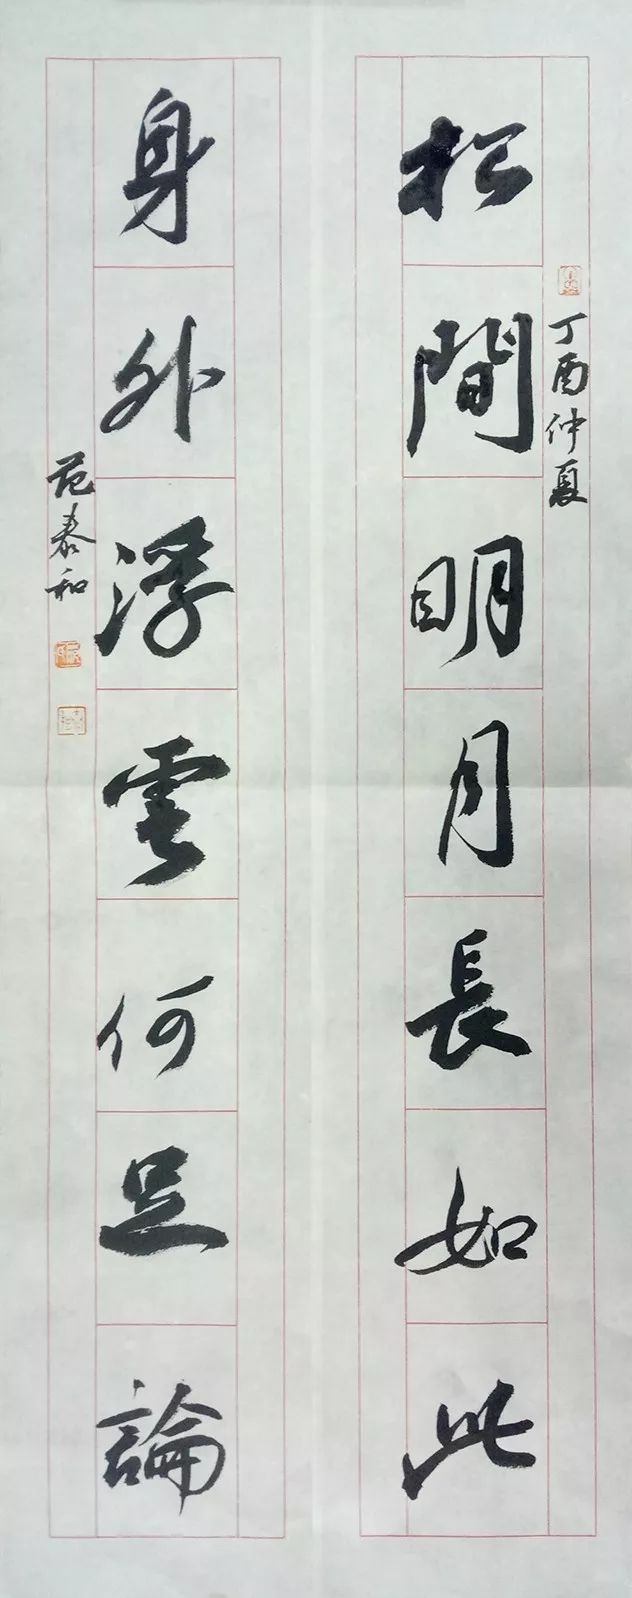 松間明月長如此
丁酉仲夏
身外浮雲何足論
范泰和